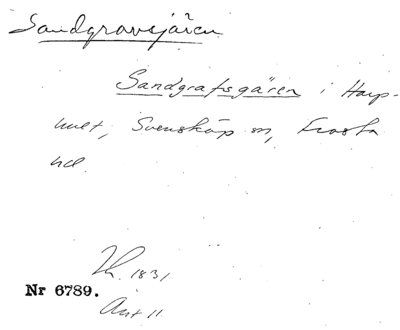 Sandgravsjären
Sandgrafsgären i Harp-
hult, Svensköp sn, Frosta
hd.
Th. 1831
Nr 6789.
Akt 11